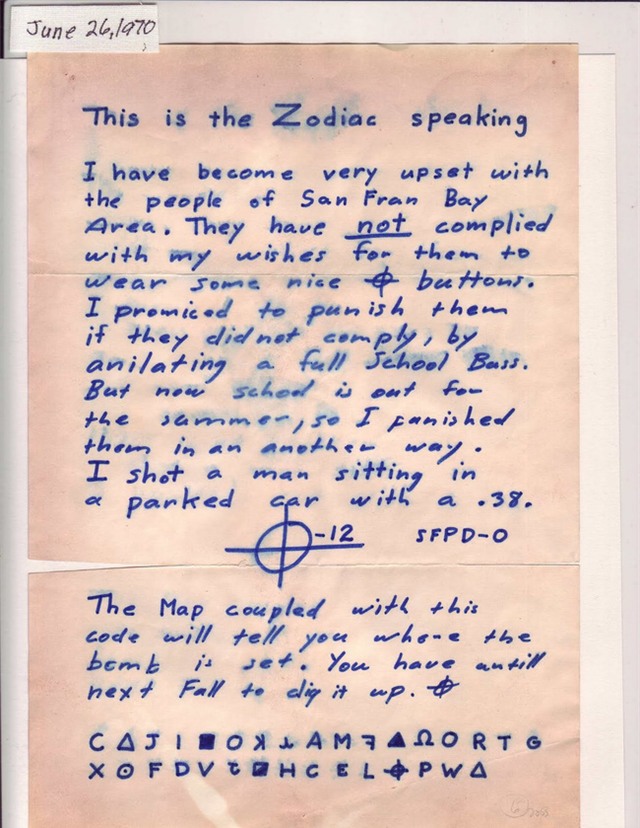 June 26, 1970
This is the Zodiac speaking
I have become very upset with
the people of San Fran Bay
Area. They have not complied
with my wishes for them to
wear some nice ⌖ buttons.
I promiced to punish them
if they did not comply, by
anilating a full School Buss.
But now school is out for
the summer, so I punished
them in an another way.
I shot a man sitting in
a parked car with a .38.
⌖-12 SFPD-0
The Map coupled with this
code will tell you where the
bomb is set. You have antill
next Fall to dig it up. ⌖
C Δ J I ■ O ꓘ ⅄ A M ꟻ ▲ Ω O R T G
X ⊙ F D V ⚬ ◪ H C E L ⌖ P W Δ